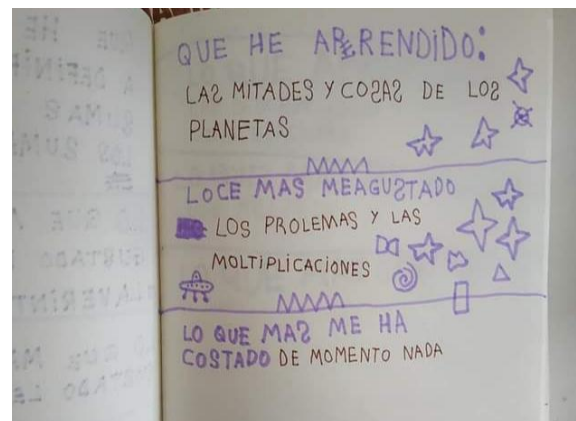 QUE HE APRENDIDO:
LAS MITADES Y COSAS DE LOS
PLANETAS
LOCE MAS MEAGUSTADO
LOS PROLEMAS Y LAS
MOLTIPLICACIONES
LO QUE MAS ME HA
COSTADO DE MOMENTO NADA